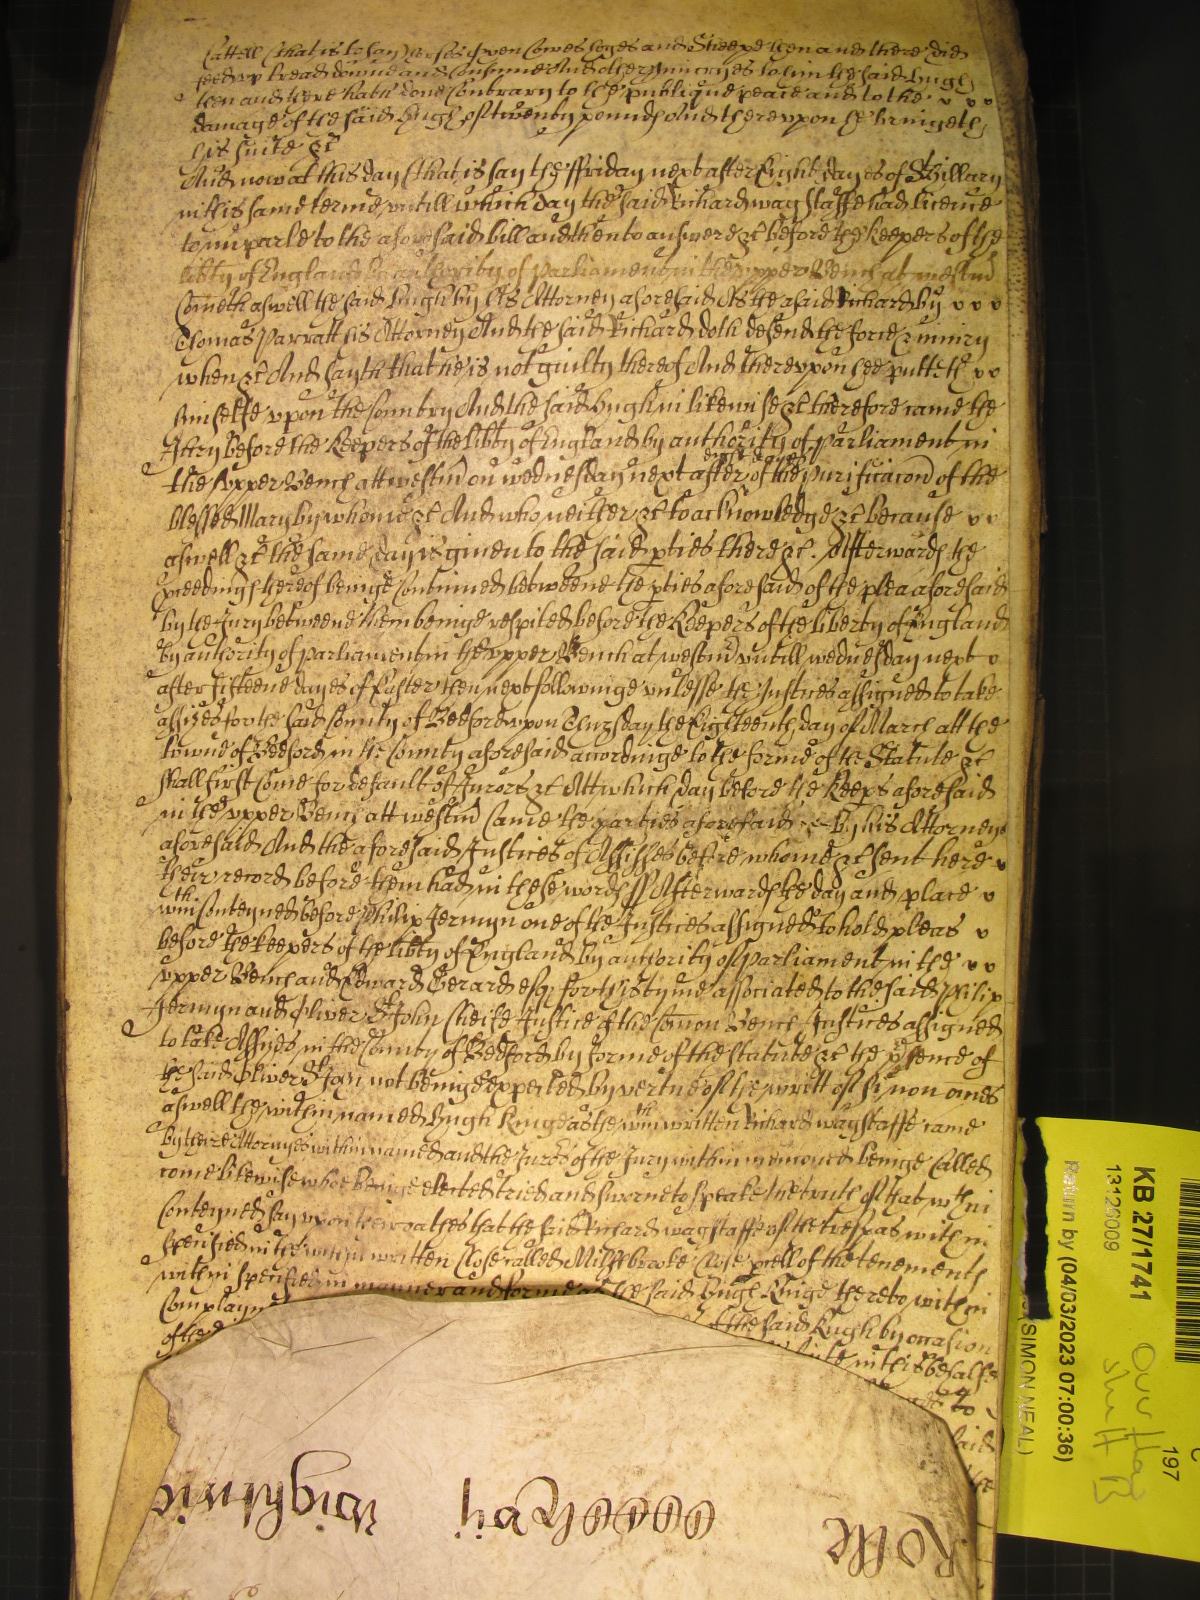 Cattell (that is to say) horses Oxen Cowes hoges and Sheepe then and there did
feed vp tread downe and Consume And other Iniuryes to him the said Hugh
then and there hath done Contrary to the publique peace and to the
damage of the said Hugh of twenty pounds And therevpon he bringeth
his suite &c
And now at this day (that is say the ffriday next after Eight dayes of St hillary
in this same terme, vntill which day the said Richard wagstaffe had licence
to imparle to the aforesaid bill and then to answere &c before the Keepers of the
libty of England by authority of Parliament in the vpper Bench at westm
Cometh aswell the said Hugh by his Attorney aforesaid As the said Richard by
Thomas Parratt his Attorney And the said Richard doth defend the force & iniury
when &c And sayth that he is not guilty thereof And therevpon hee putteth
himselfe vpon the Country And the said Hugh in likewise &c therefore came the
Iury before the Keepers of the libty of England by authority of Parliament in
the vpper Bench att westm on wednesday next after eight dayes of the Purificacon of the
blessed Mary by whome &c And who neither &c to acknowledge &c because
aswell &c the same day is giuen to the said pties there &c. Afterwards the
pceedings thereof beinge Continued betweene the pties aforesaid of the plea aforesaid
by the Iury betweene them beinge respited before the Keepers of the liberty of England
by authority of Parliament in the vpper Bench at westm vntill wednesday next
after fifteene dayes of Easter then next followinge vnlesse the Justices assigned to take
assizes for the said County of Bedford vpon Thursday the Eighteenth day of March att the
towne of Bedford in the County aforesaid accordinge to the forme of the Statute &c
shall first Come for default of Jurors &c Att which day before the Keeps aforesaid
in the vpper Bench att westm Came the parties aforesaid by his Attorneys
aforesaid And the aforesaid Justices of Assizes before whome &c sent here
their record before them had in these words ss Afterwards the day and place
wthin Conteyned before Philip Jermyn one of the Justices assigned to hold pleas
before the keepers of the libty of England by authority of Parliament in the
vpper Bench and Edward Gerard esq for this tyme associated to the said Philip
Jermyn and Oliver St John Cheife Justice of the Comon Bench Justices assigned
to take Assizes in the County of Bedford by forme of the statute &c the psence of
the said Oliver St John not beinge expected by vertue of the writt of si non omes
aswell the within named Hugh Kinge as the wthin written Richard wagstaffe came
by theire Attorneyes within named and the Jurors of the Jury within menconed beinge Called
come likewise whoe beinge elected tried and sworne to speake the truth of that wthin
Conteyned say vpon their oathes that the said Richard wagstaffe of the trespas within
specified in the within written Close called Millbrooke Close pcell of the tenements
within specified in manner and forme as the said Hugh Kinge thereto within
Complayne
of the the said Hugh by occasion
suite in this behalfe
to
said
Rolle wightwic
KB 27/1741
13126009
Return by (04/03/2023 07:00:36)
(SIMON NEAL)
197